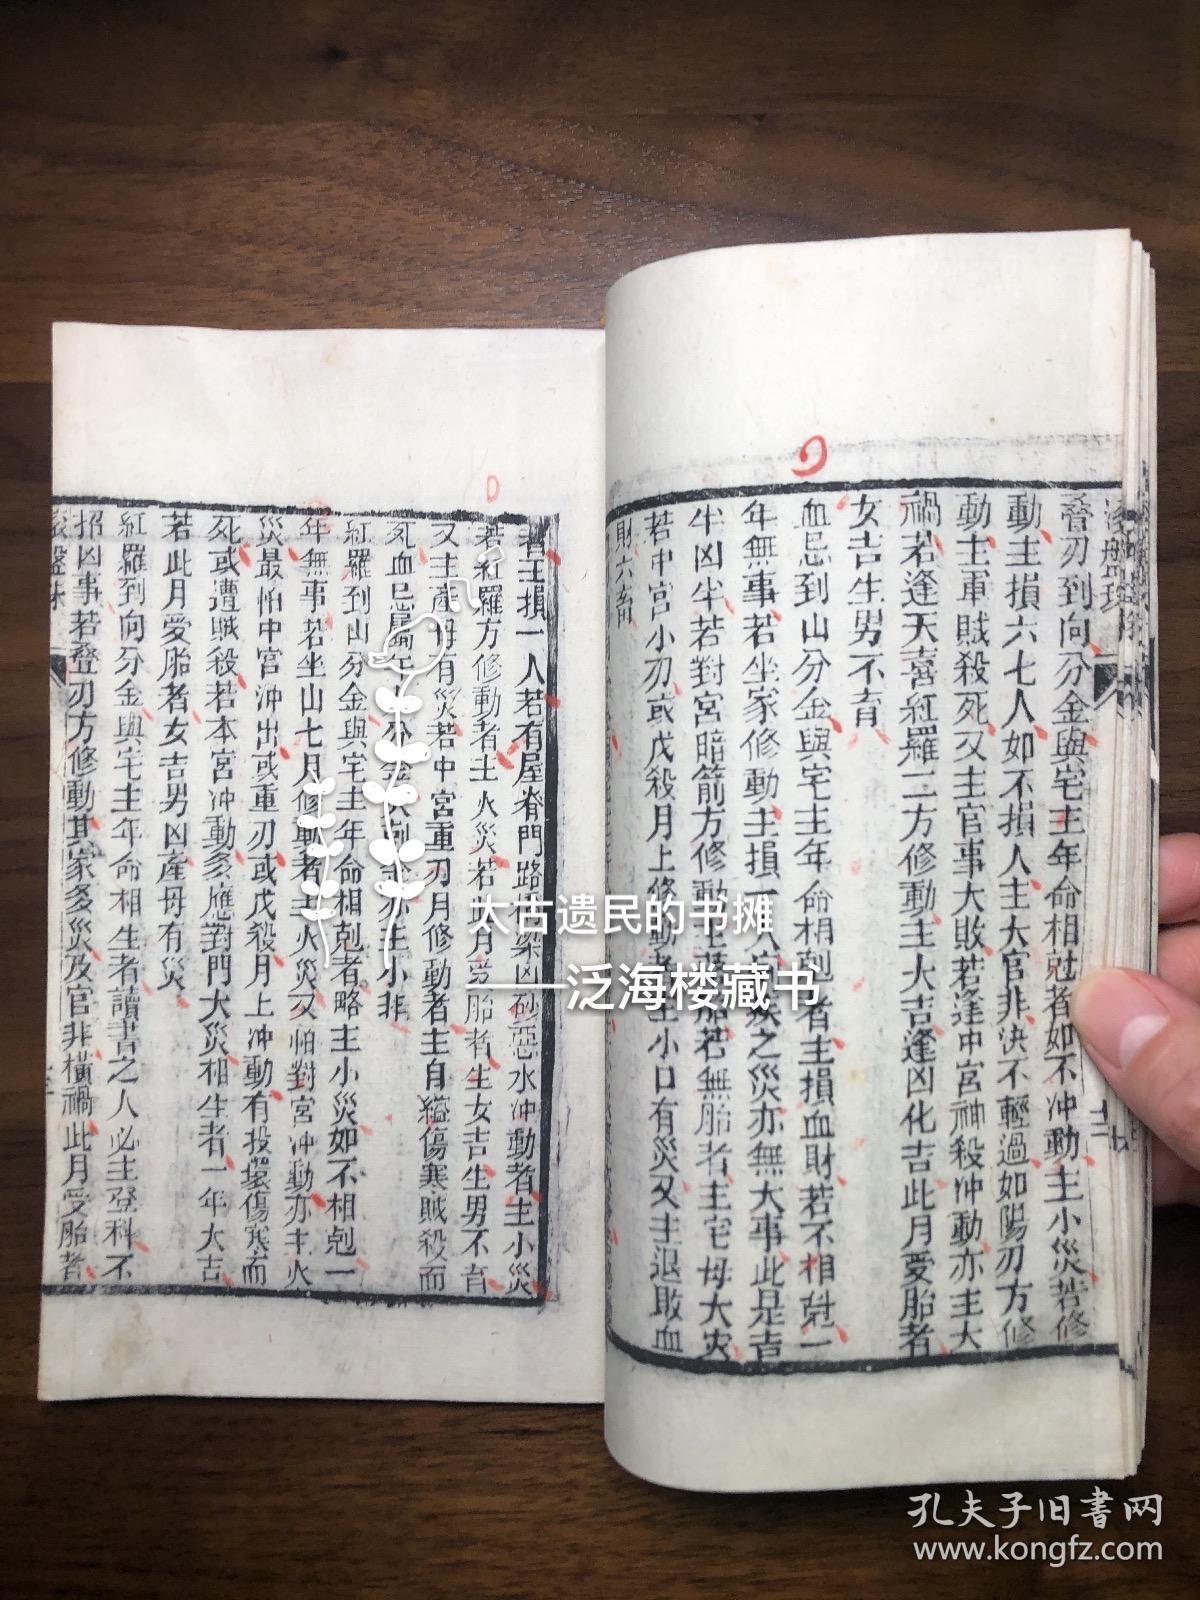 叠刃到向分金與宅主年命相尅者如不冲動主小災若修
動主損六七人如不損人主大官非決不輕過如陽刃方修
動主軍賊殺死又主官事大敗若逢中宮神殺冲動亦主大
禍若逢天喜紅羅二方修動主大吉逢凶化吉此月愛胎者
女吉生男不育
血忌到山分金與宅主年命相尅者主損血財若不相尅一
年無事若坐家修動主損一人六疾之災亦無大事此是吉
半凶半若對宮暗箭方修動主胎若無胎者主宅母大灾
若中宮小刃或戊殺月上修動者主小口有災又主退敗血
財六畜
者主損一人若有屋脊門路橋梁凶砂惡水冲動者主小災
若紅羅方修動者主火災若此月受胎者生女吉生男不育
又主產母有災若中宮重刃月修動者主自縊傷寒賊殺而
死血忌
紅羅到山分金與宅主年命相尅者略主小災如不相尅一
年無事若坐山七月修動者主火災又怕對宮冲動亦主火
災最怕中宮冲出或重刃或戊殺月上冲動有投環傷寒而
死或遭賊殺若本宮冲動多應對門大災相生者一年大吉
若此月愛胎者女吉男凶產母有災
紅羅到向分金與宅主年命相生者讀書之人必主登科不
招凶事若叠刃方修動其家多災及官非橫禍此月受胎者
太古遗民的书摊
——泛海楼藏书
孔夫子旧书网
www.kongfz.com